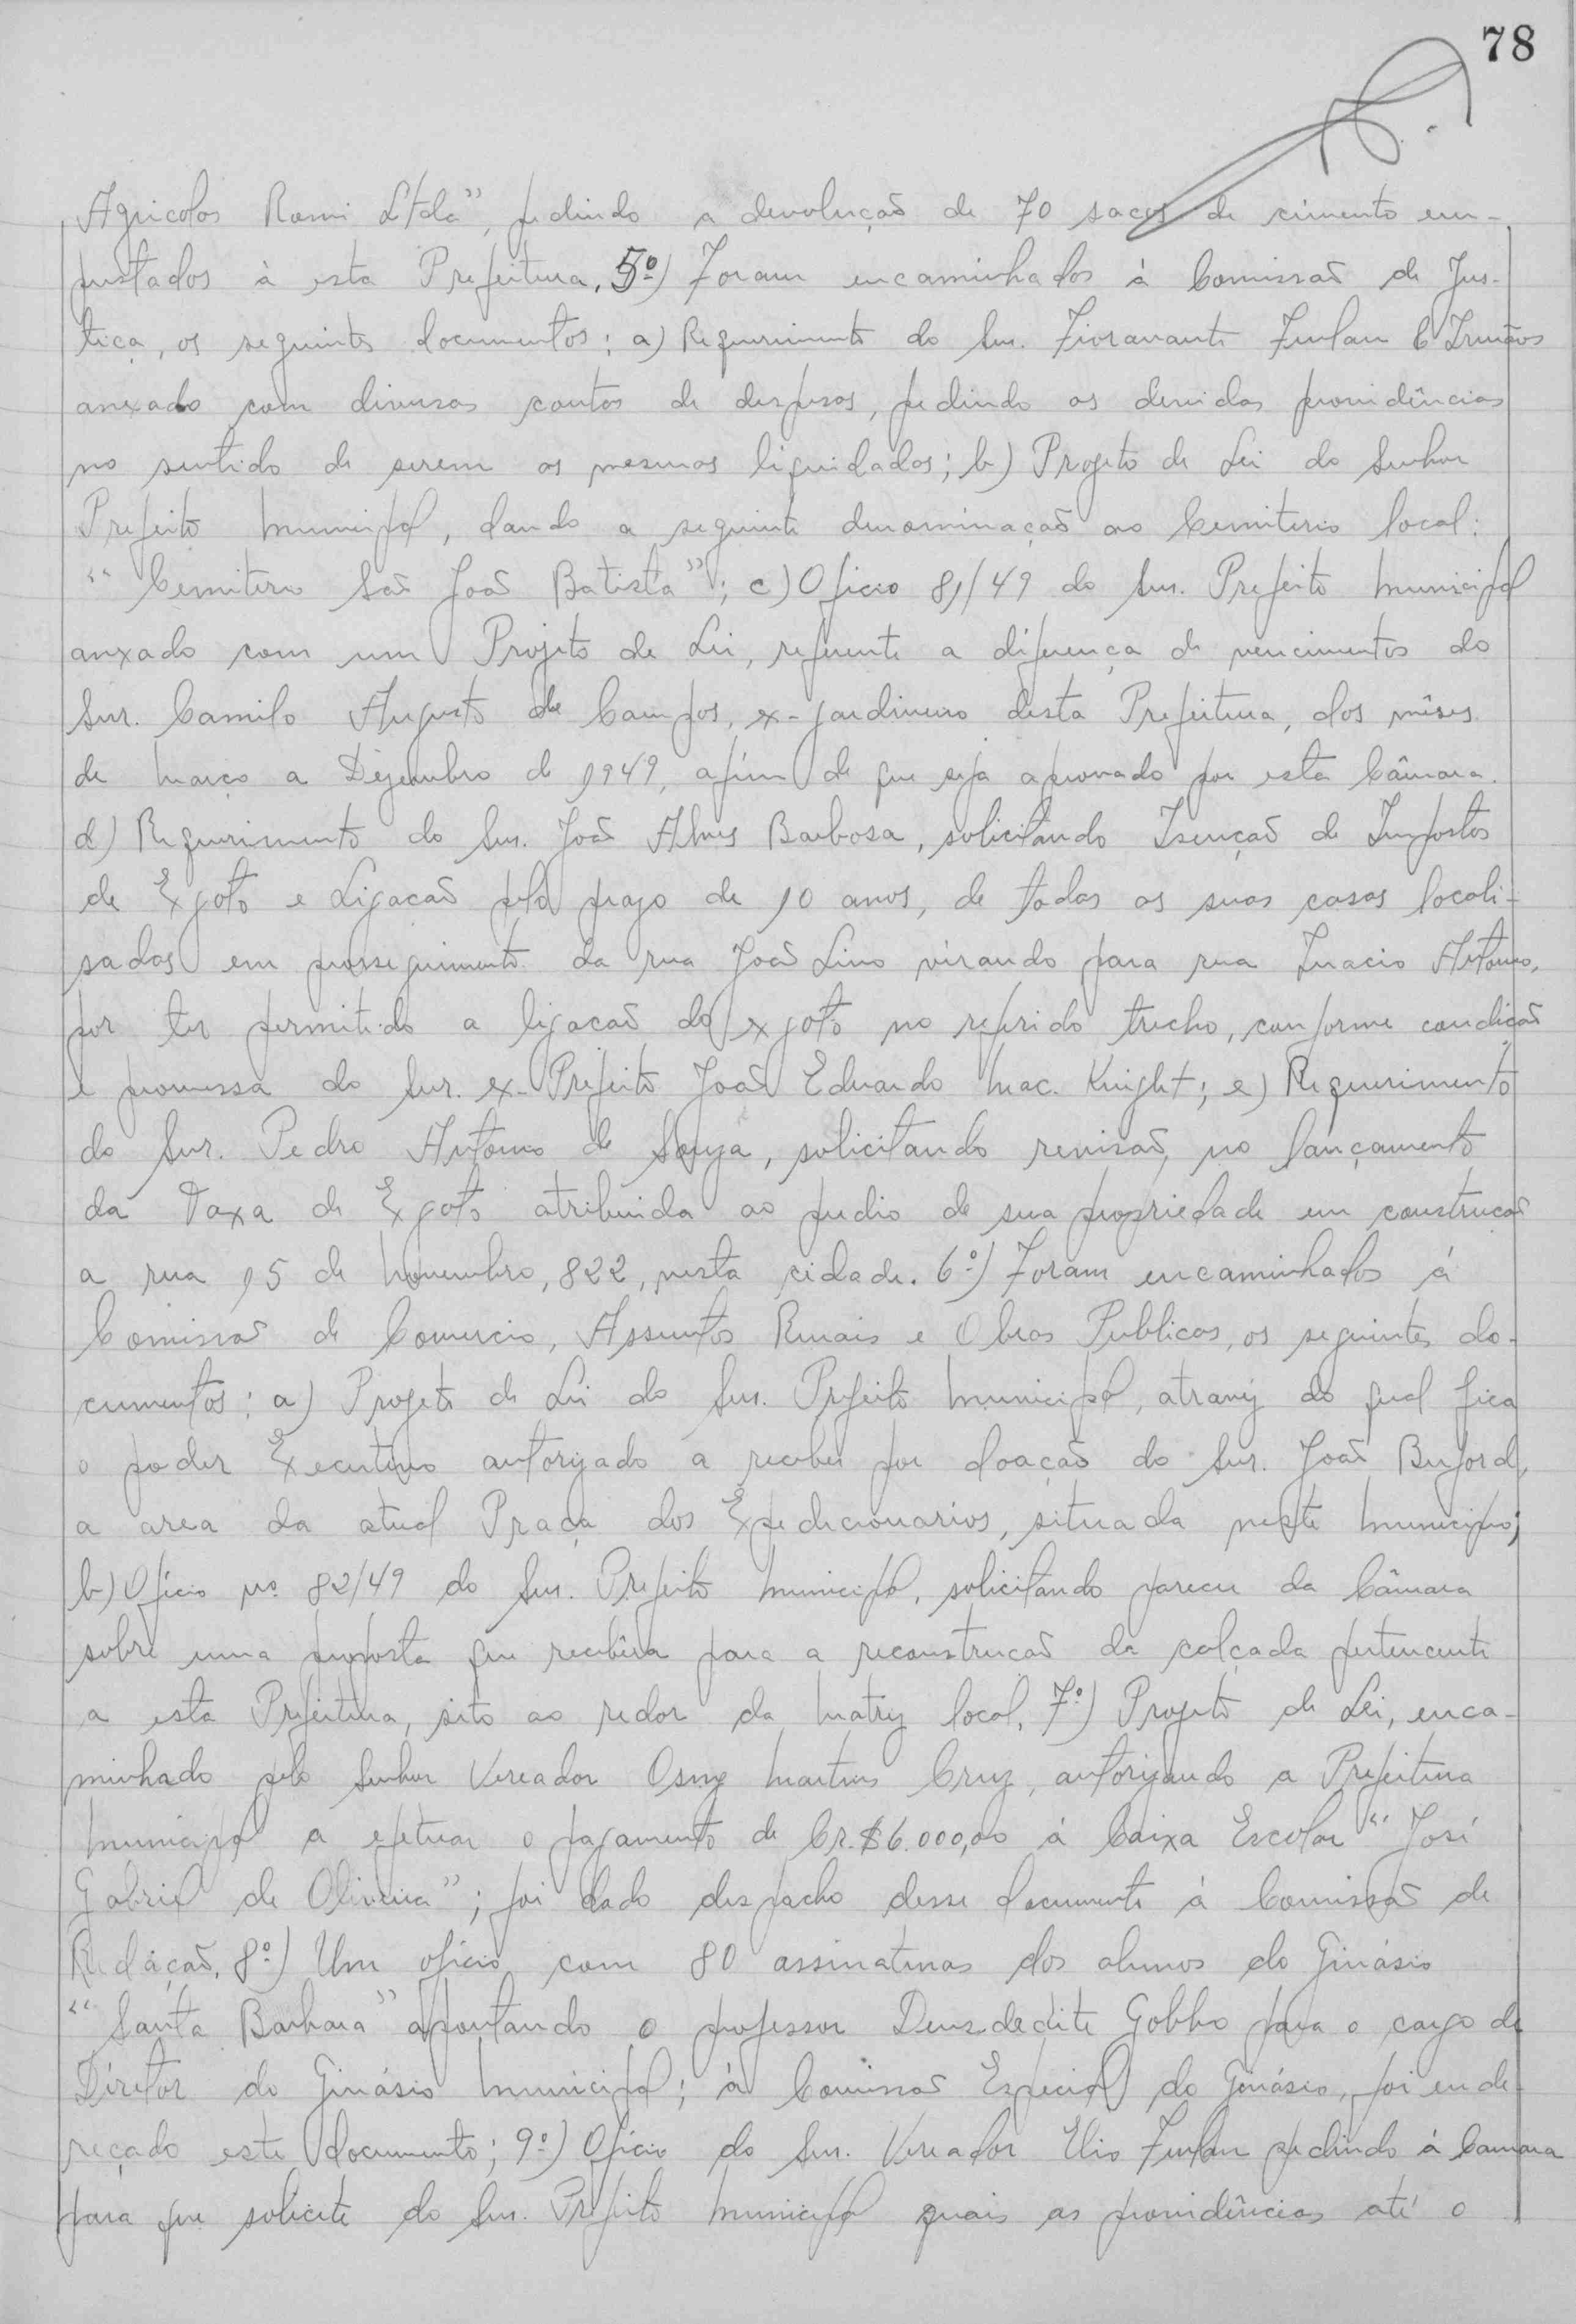 78
Agricolas Romi Ltda", pedindo a devolução de 70 sacos de cimento em-
prestados à esta Prefeitura. 5º) Foram encaminhados à Comissão de Jus-
tiça, os seguintes documentos: a) Requerimento do Snr. Fioravante Furlan & Irmãos
anexado com diversas contas de despesas, pedindo as devidas providências
no sentido de serem as mesmas liquidadas; b) Projeto de Lei do Senhor
Prefeito Municipal, dando a seguinte denominação ao Cemiterio local:
"Cemiterio São João Batista"; c) Oficio 81/49 do Snr. Prefeito Municipal
anxado com um Projeto de Lei, referente a diferença de vencimentos do
Snr. Camilo Augusto de Campos, ex-jardineiro desta Prefeitura, dos mêses
de Março a Dezembro de 1949, afim de que seja aprovado por esta Câmara.
d) Requerimento do Snr. João Alves Barbosa, solicitando Isenção de Impostos
de Exgoto e Ligacão pelo prazo de 10 anos, de todas as suas casas locali-
sadas em prosseguimento da rua João Lino virando para rua Inacio Antonio,
por ter permitido a ligacão do exgoto no referido trecho, conforme condição
e promessa do Snr. ex-Prefeito João Eduardo Mac. Knight; e) Requerimento
do Snr. Pedro Antonio de Souza, solicitando revisão, no lançamento
da Taxa de Exgoto atribuida ao predio de sua propriedade em construcão
a rua 15 de Novembro, 822, nesta cidade. 6º) Foram encaminhados á
Comissão de Comercio, Assuntos Rurais e Obras Publicas, os seguintes do-
cumentos: a) Projeto de Lei do Snr. Prefeito Municipal, atravez do qual fica
o poder Executivo autorizado a receber por doação do Snr. João Buford,
a area da atual Praça dos Expedicionarios, situada neste Municipio;
b) Oficio nº 82/49 do Snr. Prefeito Municipal, solicitando parecer da Câmara
sobre uma proposta que recebêra para a reconstrucão da calçada pertencente
a esta Prefeitura, sito ao redor da Matriz local. 7º) Projeto de Lei, enca-
minhado pelo Senhor Vereador Osny Martins Cruz, autorizando a Prefeitura
Municipal a efetuar o pagamento de Cr.$6.000,00 á Caixa Escolar "José
Gabriel de Oliveira"; foi dado despacho desse documento à Comissão de
Redáção. 8º) Um oficio com 80 assinaturas dos alunos do Ginásio
"Santa Barbara" apontando o professor Deusdedite Gobbo para o cargo de
Diretor do Ginásio Municipal; à Comissão Especial do Ginásio, foi ende-
reçado este documento; 9º) Oficio do Snr. Vereador Elio Furlan pedindo á Camara
para que solicite do Snr. Prefeito Municipal quais as providências até o